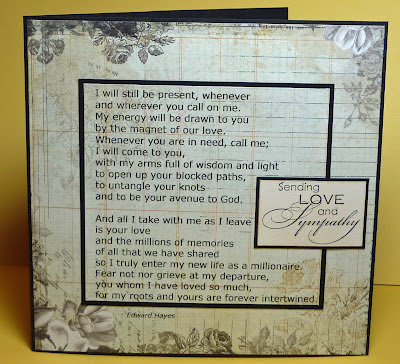 I will still be present, whenever
and wherever you call on me.
My energy will be drawn to you
by the magnet of our love.
Whenever you are in need, call me;
I will come to you,
with my arms full of wisdom and light
to open up your blocked paths,
to untangle your knots
and to be your avenue to God.
And all I take with me as I leave
is your love
and the millions of memories
of all that we have shared
so I truly enter my new life as a millionaire.
Fear not nor grieve at my departure,
you whom I have loved so much,
for my roots and yours are forever intertwined.
Edward Hayes
Sending
LOVE
and
Sympathy